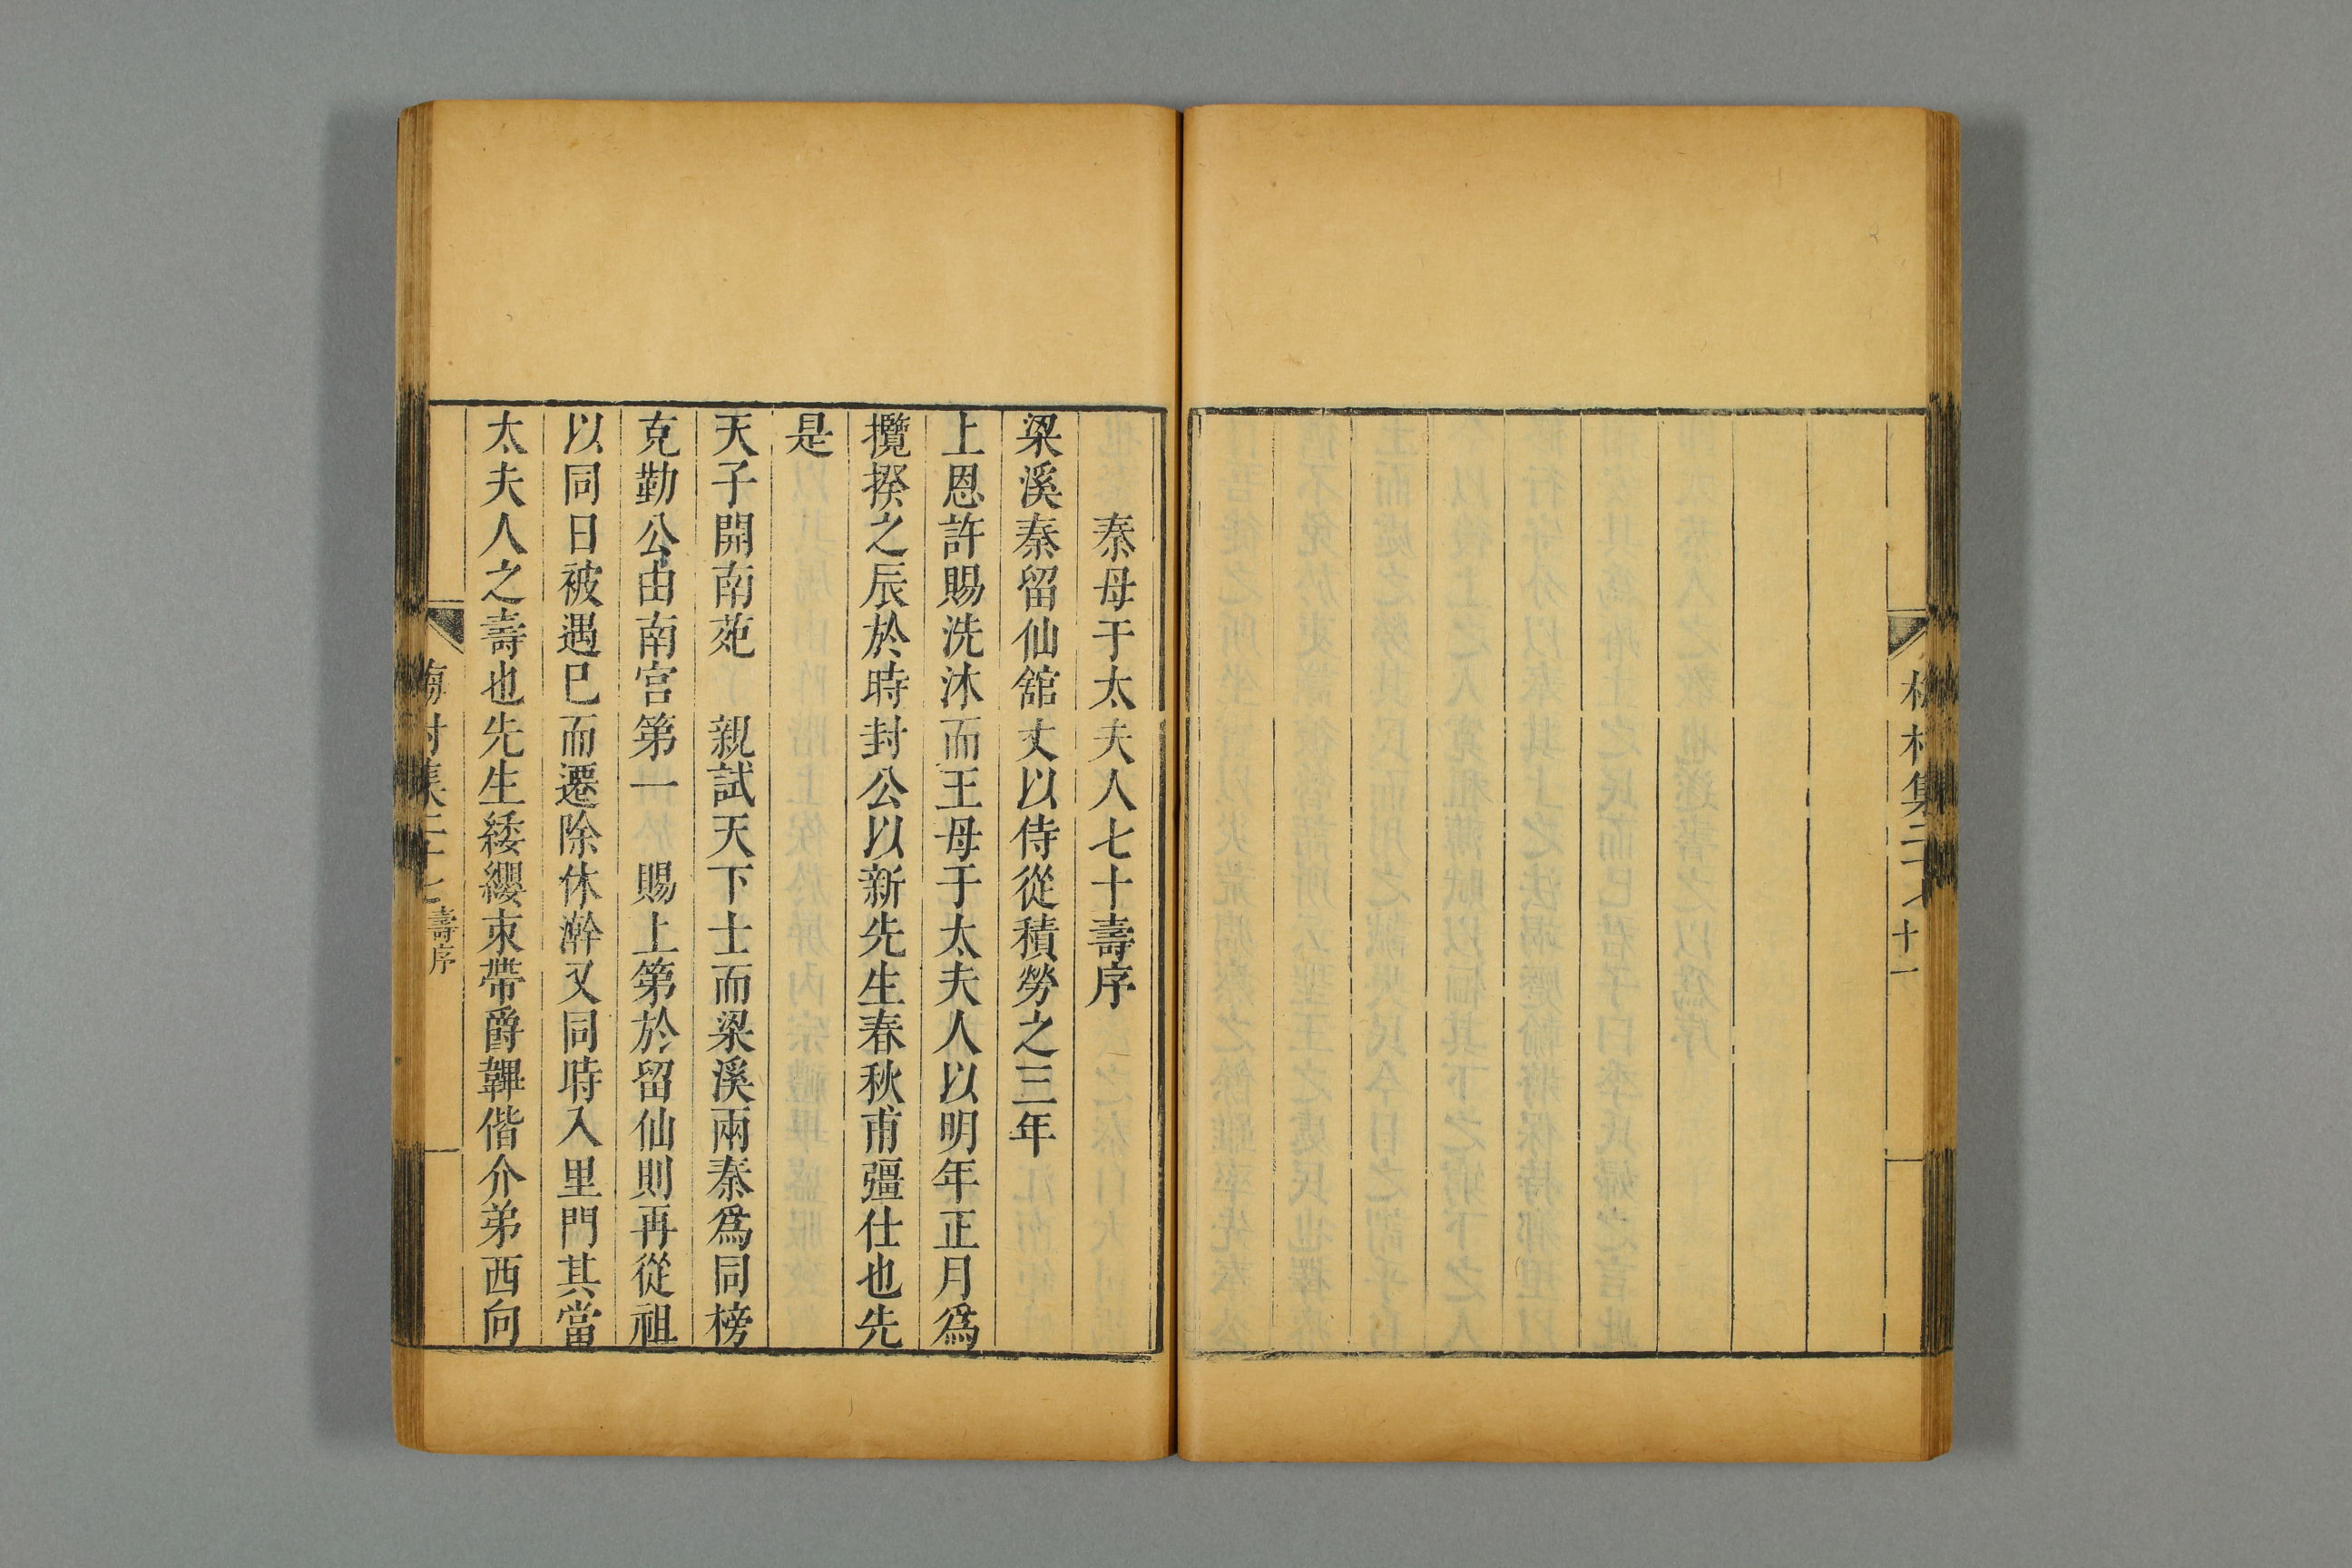 集
十一
秦母于太夫人七十壽序
梁溪秦留仙舘丈以侍從積勞之三年
上恩許賜洗沐而王母于太夫人以明年正月爲
攬揆之辰於時封公以新先生春秋甫彊仕也先
是
天子開南苑 親試天下士而梁溪兩秦爲同榜
克勤公由南宮第一 賜上第於留仙則再從祖
以同日被遇巳而遷除休澣又同時入里門其當
太夫人之壽也先生緌纓束帶爵韠偕介弟西向
壽序